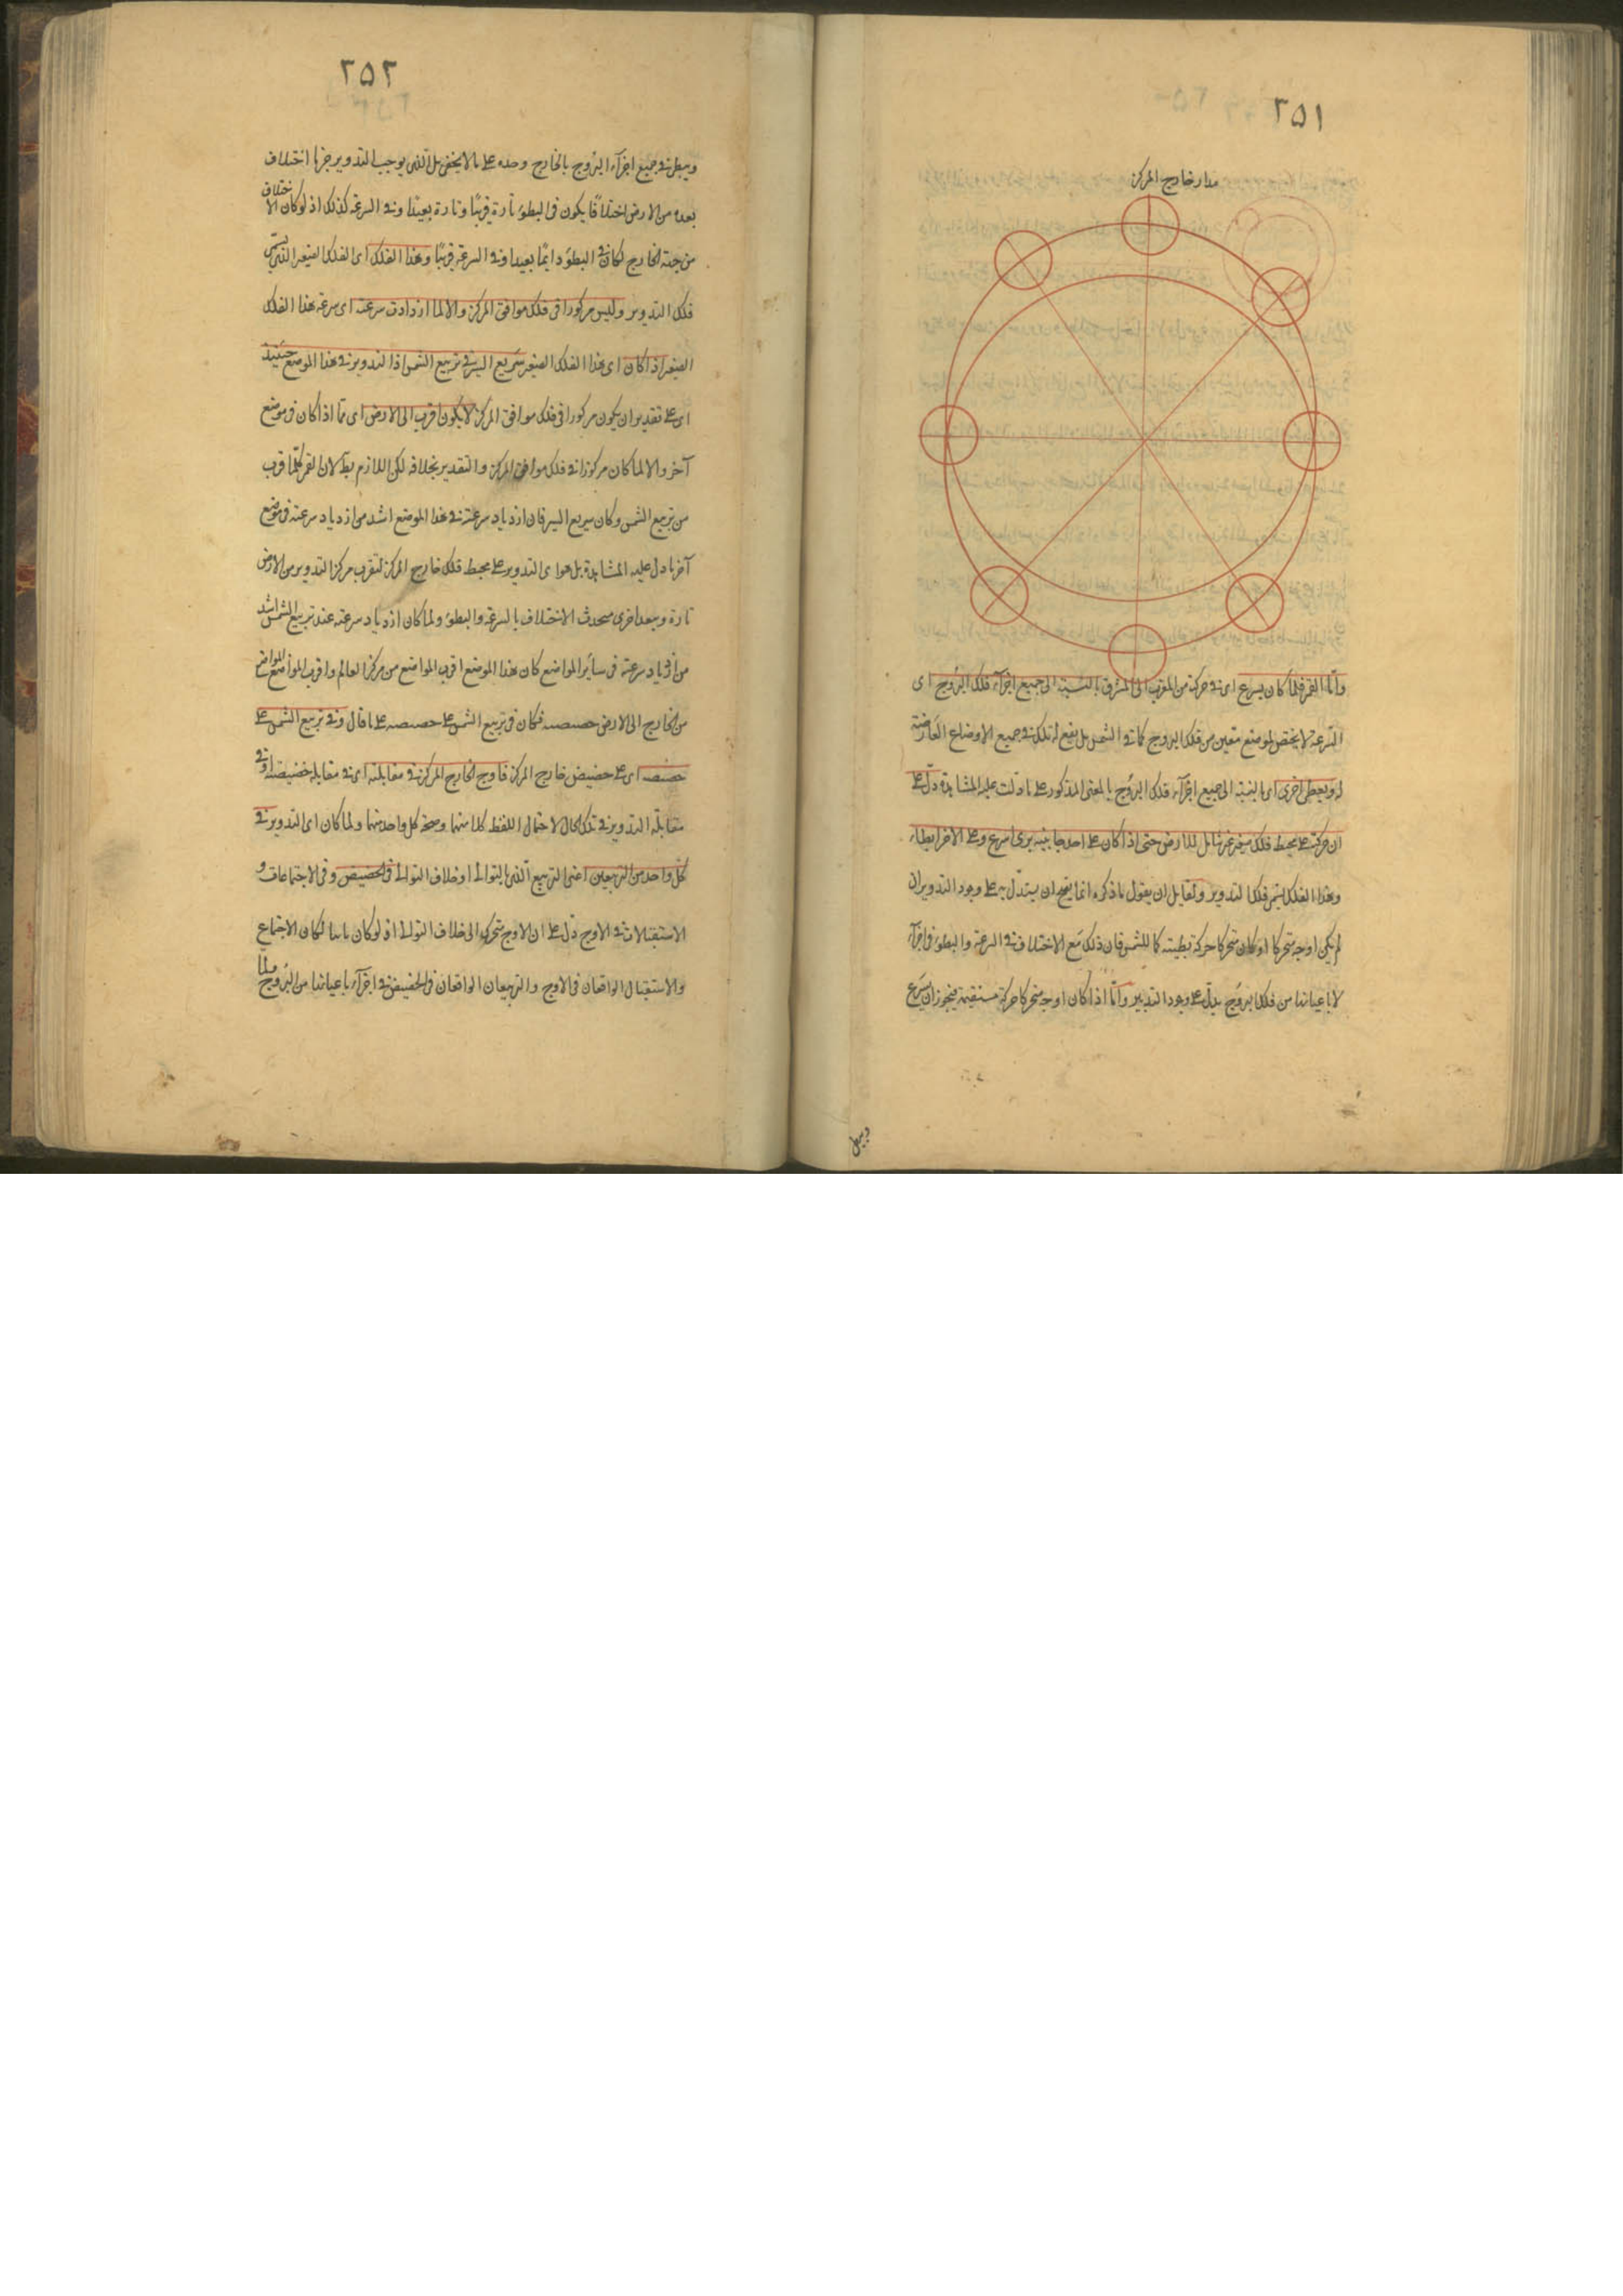 ٢٥١
مدار خارج المركز
واما القمر فلما كان يسرع اى فى حركته من المغرب الى المشرق بالنسبة الى جميع اجزآء فلك البروج اى
السرعة لا يختص لموضع متعين من فلك البروج كما فى الشمس بل يقع له تلك فى جميع الاوضاع العارضة
له ويبطئ اخرى اى بالنسبة الى جميع اجزآء فلك البروج بالمعنى المذكور على ما دلت عليه المشاهدة دل على
ان حركته على محيط فلك صغير غير شامل للارض حتى اذا كان على احد جانبيه يرى اسرع وعلى الاخر ابطاء
وهذا الفلك يسمى فلك التدوير ولقايل ان يقول ما ذكره انما يصح ان يستدل به على وجود التدوير ان
لم يكن اوجه متحركا او كان متحركا حركة بطيئة كما للشمس فان ذلك مع الاختلاف فى السرعة والبطوء فى اجزآء
لا باعيانها من فلك البروج يدل على وجود التدوير واما اذا كان اوجه متحركا حركة مستقيمة فيجوز ان يسرع
ويبطى
٢٥٢
ويبطى فى جميع اجزآء البروج بالخارج وحده على ما لا يخفى بل الذى يوجب التدوير جزما اختلاف
بعده من الارض اختلافا يكون فى البطوء تارة قريبا وتارة بعيدا وفى السرعة كذلك اذ لو كان الاختلاف
من جهة الخارج لكان فى البطوء دايما بعيدا وفى السرعة قريبا وهذا الفلك اى الفلك الصغير الذى يسمى
فلك التدوير وليس مركوزا فى فلك موافق المركز والا لما ازدادت سرعته اى سرعة هذا الفلك
الصغير اذا كان اى هذا الفلك الصغير سريع السير فى تربيع الشمس اذ التدوير فى هذا الموضع حينئذ
اى على تقدير ان يكون مركوزا فى فلك موافق المركز لا يكون اقرب الى الارض اى مما اذا كان فى موضع
آخر والا لما كان مركوزا فى فلك موافق المركز والتقدير بخلافه لكن اللازم بط لان القمر كلما قرب
من تربيع الشمس وكان سريع السير فان ازدياد سرعته فى هذا الموضع اشد من ازدياد سرعته فى موضع
آخر بما دل عليه المشاهدة بل هو اى التدوير على محيط فلك خارج المركز لتقرب مركز التدوير من الارض
تارة ويبعد اخرى فيحدث الاختلاف بالسرعة والبطوء ولما كان ازدياد سرعته عند تربيع الشمس اشد
من ازدياد سرعته فى سائر المواضع كان هذا الموضع اقرب المواضع من مركز العالم واقرب المواضع
من الخارج الى الارض حضيضه فكان فى تربيع الشمس على حضيضه على ما قال وفى تربيع الشمس على
حضيضه اى على حضيض خارج المركز فاوج الخارج المركز فى مقابلته اى فى مقابلة حضيضه او فى
مقابلة التدوير فى تلك الحال لاحتمال اللفظ كلا منهما وصحة كل واحد منهما ولما كان اى التدوير فى
كل واحد من التربيعين اعنى التربيع الذى بالتوالى او خلاف التوالى فى الحضيض وفى الاجتماعات و
الاستقبالات فى الاوج دل على ان الاوج متحرك الى خلاف التوالى اذ لو كان ثابتا لكان الاجتماع
والاستقبال الواقعان فى الاوج والتربيعان الواقعان فى الحضيض فى اجزآء باعيانها من البروج